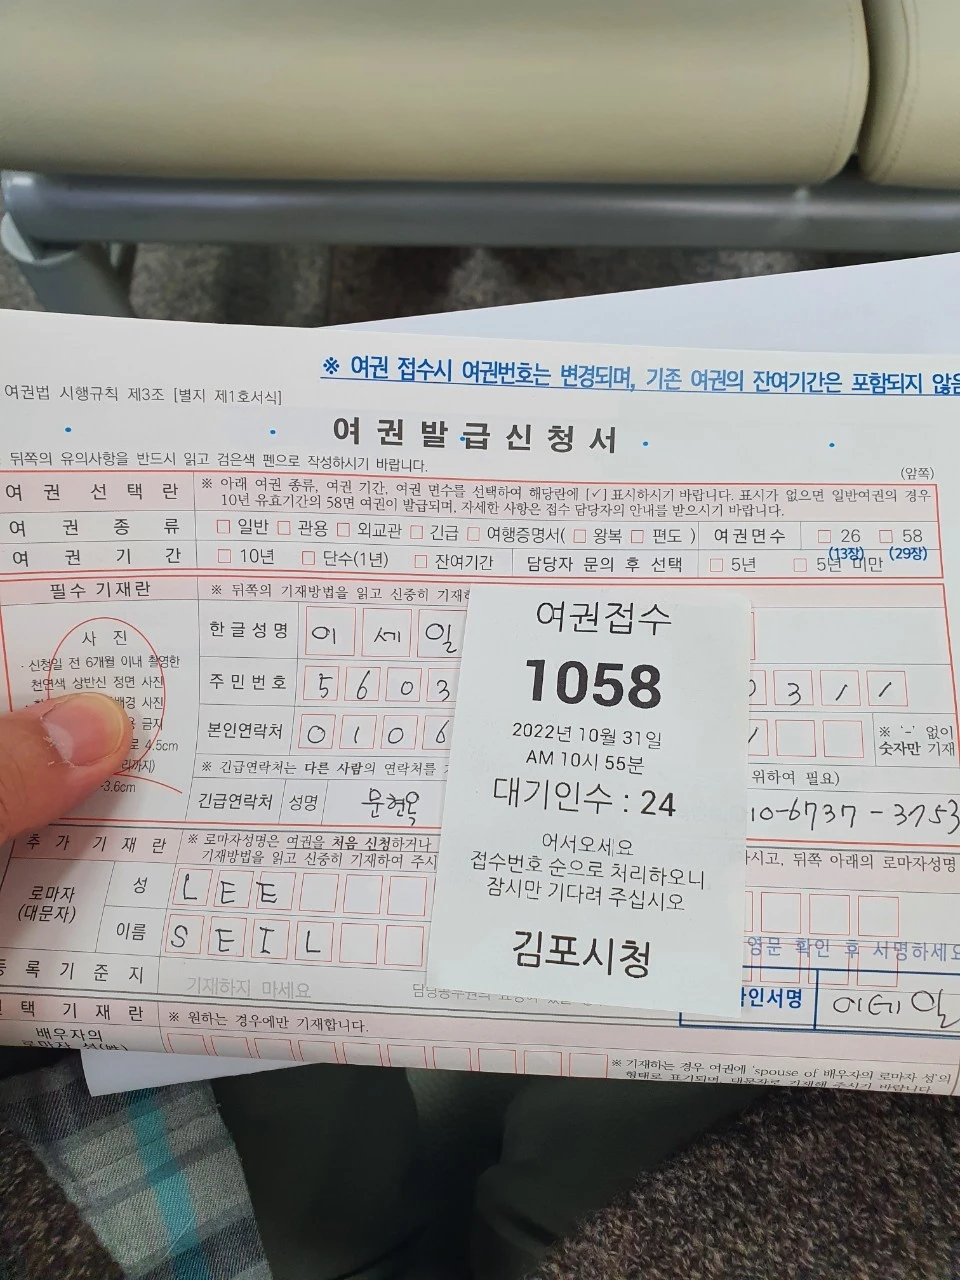 ※ 여권 접수시 여권번호는 변경되며, 기존 여권의 잔여기간은 포함되지 않음
여권법 시행규칙 제3조 [별지 제1호서식]
여권발급신청서
뒤쪽의 유의사항을 반드시 읽고 검은색 펜으로 작성하시기 바랍니다.
(앞쪽)
여 권 선 택 란
※ 아래 여권 종류, 여권 기간, 여권 면수를 선택하여 해당란에 [✓] 표시하시기 바랍니다. 표시가 없으면 일반여권의 경우
10년 유효기간의 58면 여권이 발급되며, 자세한 사항은 접수 담당자의 안내를 받으시기 바랍니다.
여 권 종 류 □ 일반 □ 관용 □ 외교관 □ 긴급 □ 여행증명서( □ 왕복 □ 편도 ) 여권면수 □ 26 □ 58
(13장) (29장)
여 권 기 간 □ 10년 □ 단수(1년) □ 잔여기간 담당자 문의 후 선택 □ 5년 □ 5년 미만
필수 기재란
※ 뒤쪽의 기재방법을 읽고 신중히
사 진
· 신청일 전 6개월 이내 촬영한
천연색 상반신 정면 사진
배경 사진
금지
4.5cm
3.6cm
한글성명 이 세 일
주민번호 5 6 0 3
3 1 1
본인연락처 0 1 0 6
※ '-' 없이
숫자만 기재
※ 긴급연락처는 다른 사람의 연락처를
위하여 필요)
긴급연락처 성명 문현옥
10-6737-3153
여권접수
1058
2022년 10월 31일
AM 10시 55분
대기인수 : 24
어서오세요
접수번호 순으로 처리하오니
잠시만 기다려 주십시오
김포시청
추 가 기 재 란
※ 로마자성명은 여권을 처음 신청하거나
기재방법을 읽고 신중히 기재하여 주시
하시고, 뒤쪽 아래의 로마자성명
로마자
(대문자)
성 L E E
이름 S E I L
영문 확인 후 서명하세요
등 록 기 준 지 기재하지 마세요
확인서명 이세일
선 택 기 재 란 ※ 원하는 경우에만 기재합니다.
배우자의
※ 기재하는 경우 여권에 'spouse of 배우자의 로마자 성'의
형태로 표기되며, 대문자로 기재해 주시기 바랍니다.